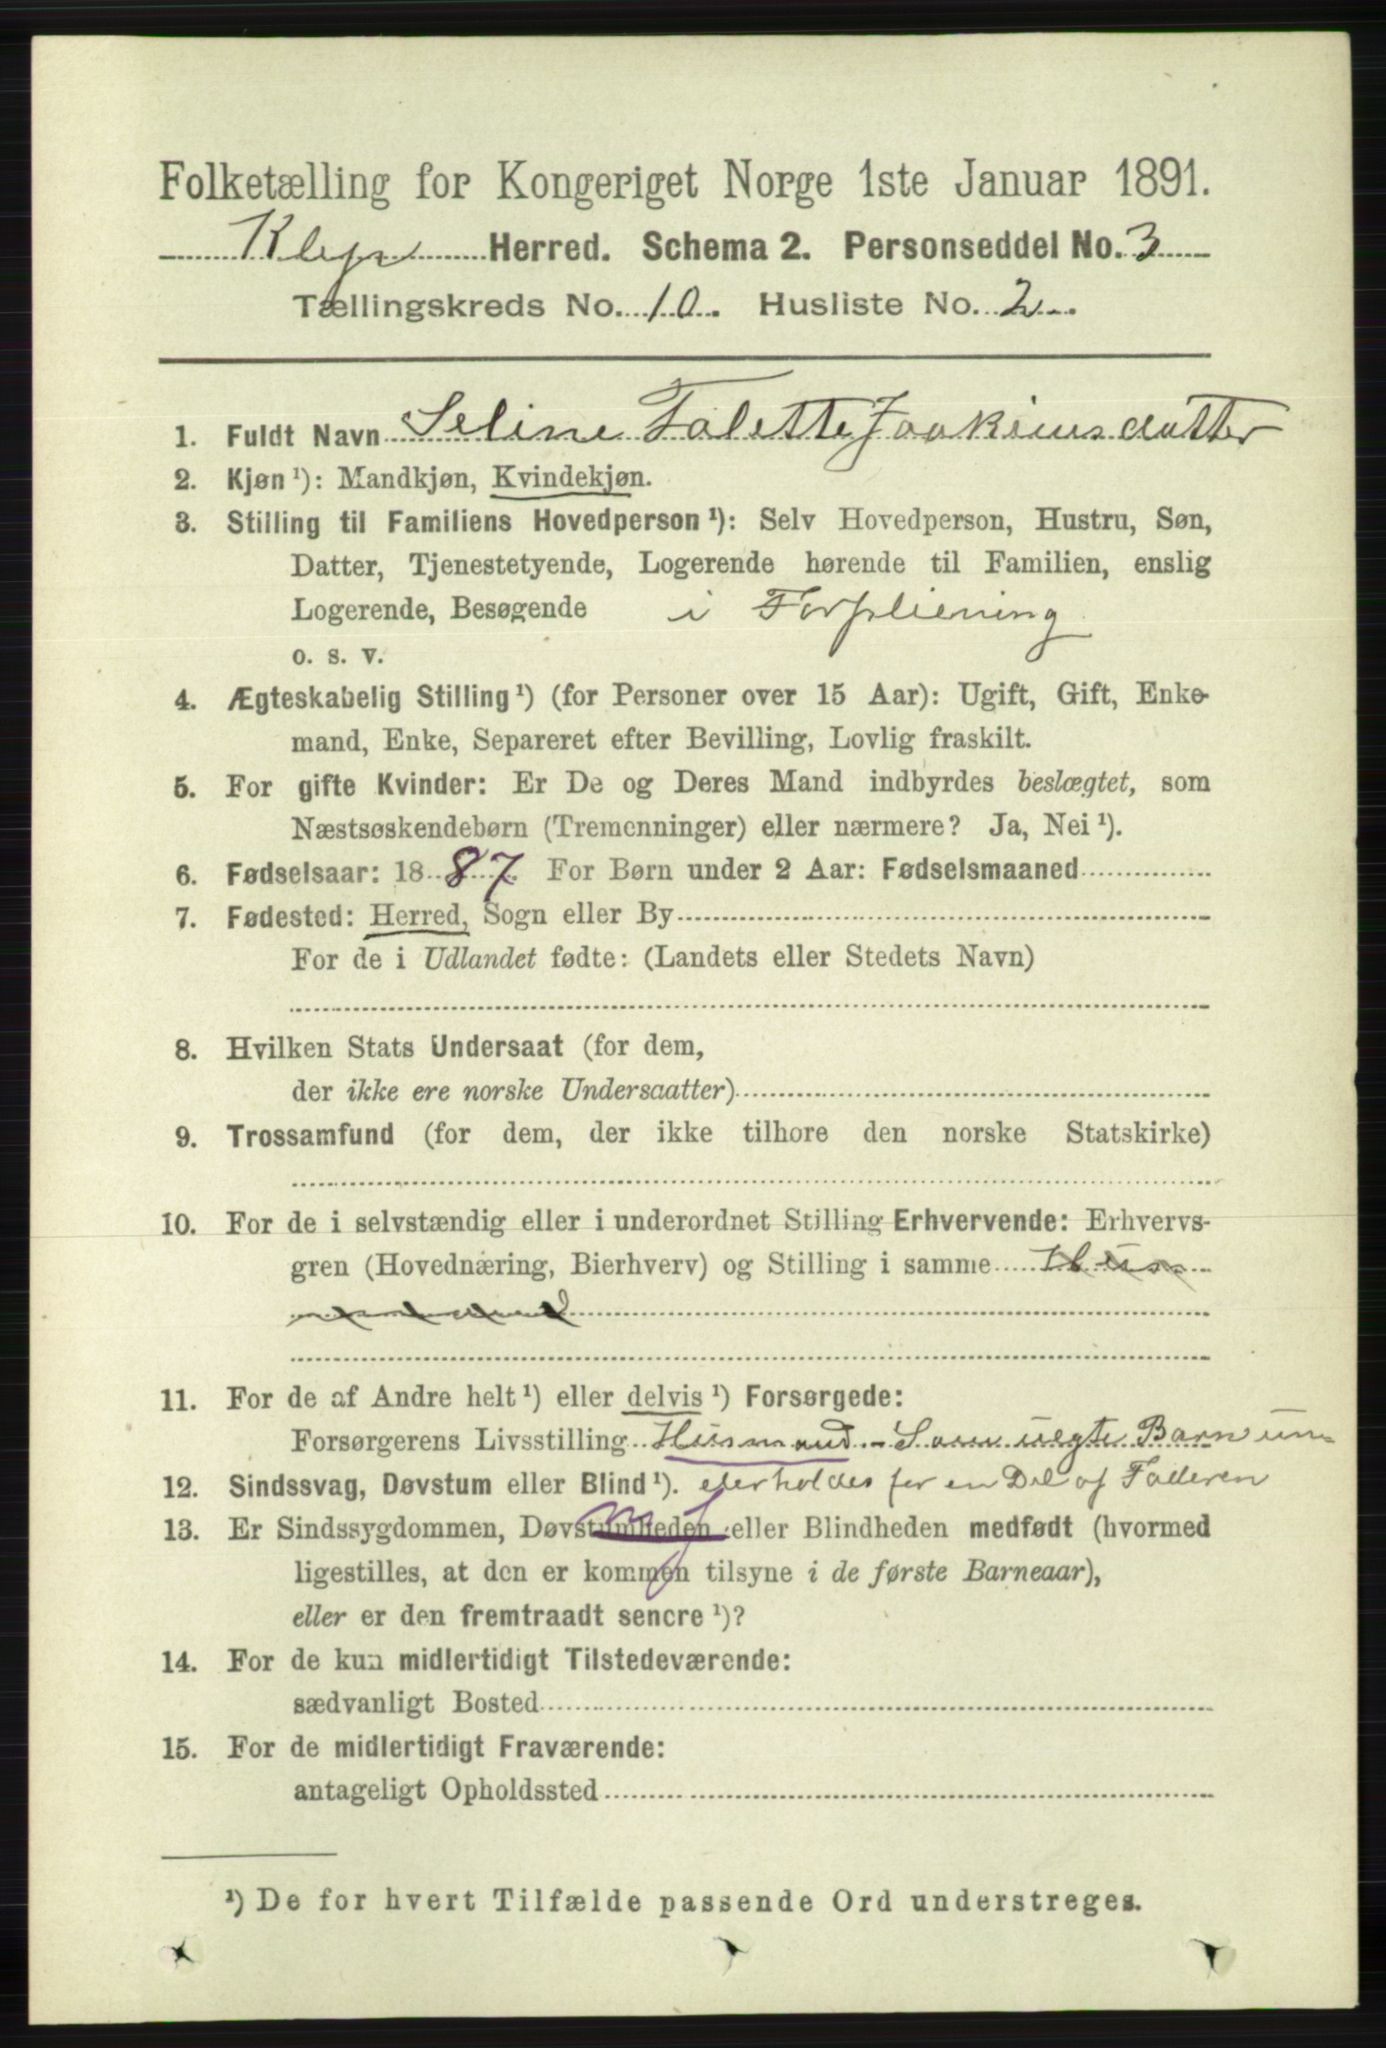 Folketælling for Kongeriget Norge 1ste Januar 1891.
Klep Herred. Schema 2. Personseddel No. 3
Tællingskreds No. 10. Husliste No. 2
1. Fuldt Navn Seline Talette Joakimsdatter
2. Kjøn ¹): Mandkjøn, Kvindekjøn.
3. Stilling til Familiens Hovedperson ¹): Selv Hovedperson, Hustru, Søn,
Datter, Tjenestetyende, Logerende hørende til Familien, enslig
Logerende, Besøgende i Forpliening
o. s. v.
4. Ægteskabelig Stilling ¹) (for Personer over 15 Aar): Ugift, Gift, Enke-
mand, Enke, Separeret efter Bevilling, Lovlig fraskilt.
5. For gifte Kvinder: Er De og Deres Mand indbyrdes beslægtet, som
Næstsøskendebørn (Tremenninger) eller nærmere? Ja, Nei ¹).
6. Fødselsaar: 1887. For Børn under 2 Aar: Fødselsmaaned
7. Fødested: Herred, Sogn eller By
For de i Udlandet fødte: (Landets eller Stedets Navn)
8. Hvilken Stats Undersaat (for dem,
der ikke ere norske Undersaatter)
9. Trossamfund (for dem, der ikke tilhøre den norske Statskirke)
10. For de i selvstændig eller i underordnet Stilling Erhvervende: Erhvervs-
gren (Hovednæring, Bierhverv) og Stilling i samme
11. For de af Andre helt ¹) eller delvis ¹) Forsørgede:
Forsørgerens Livsstilling Husmand - Som uegte Barn un-
12. Sindssvag, Døvstum eller Blind ¹). derholdes for en Del af Faderen
13. Er Sindssygdommen, Døvstumheden eller Blindheden medfødt (hvormed
ligestilles, at den er kommen tilsyne i de første Barneaar),
eller er den fremtraadt senere ¹)?
14. For de kun midlertidigt Tilstedeværende:
sædvanligt Bosted
15. For de midlertidigt Fraværende:
antageligt Opholdssted
¹) De for hvert Tilfælde passende Ord understreges.